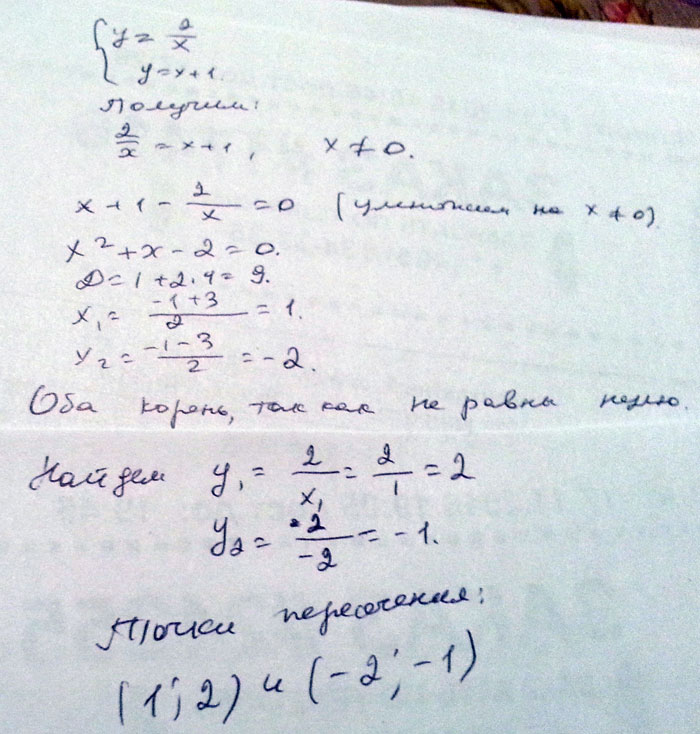 { y = 2/x
y = x+1
Получим:
2/x = x+1, x ≠ 0.
x + 1 - 2/x = 0 (умножим на x ≠ 0).
x² + x - 2 = 0.
D = 1 + 2·4 = 9.
x₁ = (-1+3)/2 = 1.
x₂ = (-1-3)/2 = -2.
Оба корень, так как не равны нулю.
Найдем y₁ = 2/x₁ = 2/1 = 2
y₂ = 2/-2 = -1.
Точки пересечения:
(1; 2) и (-2; -1)